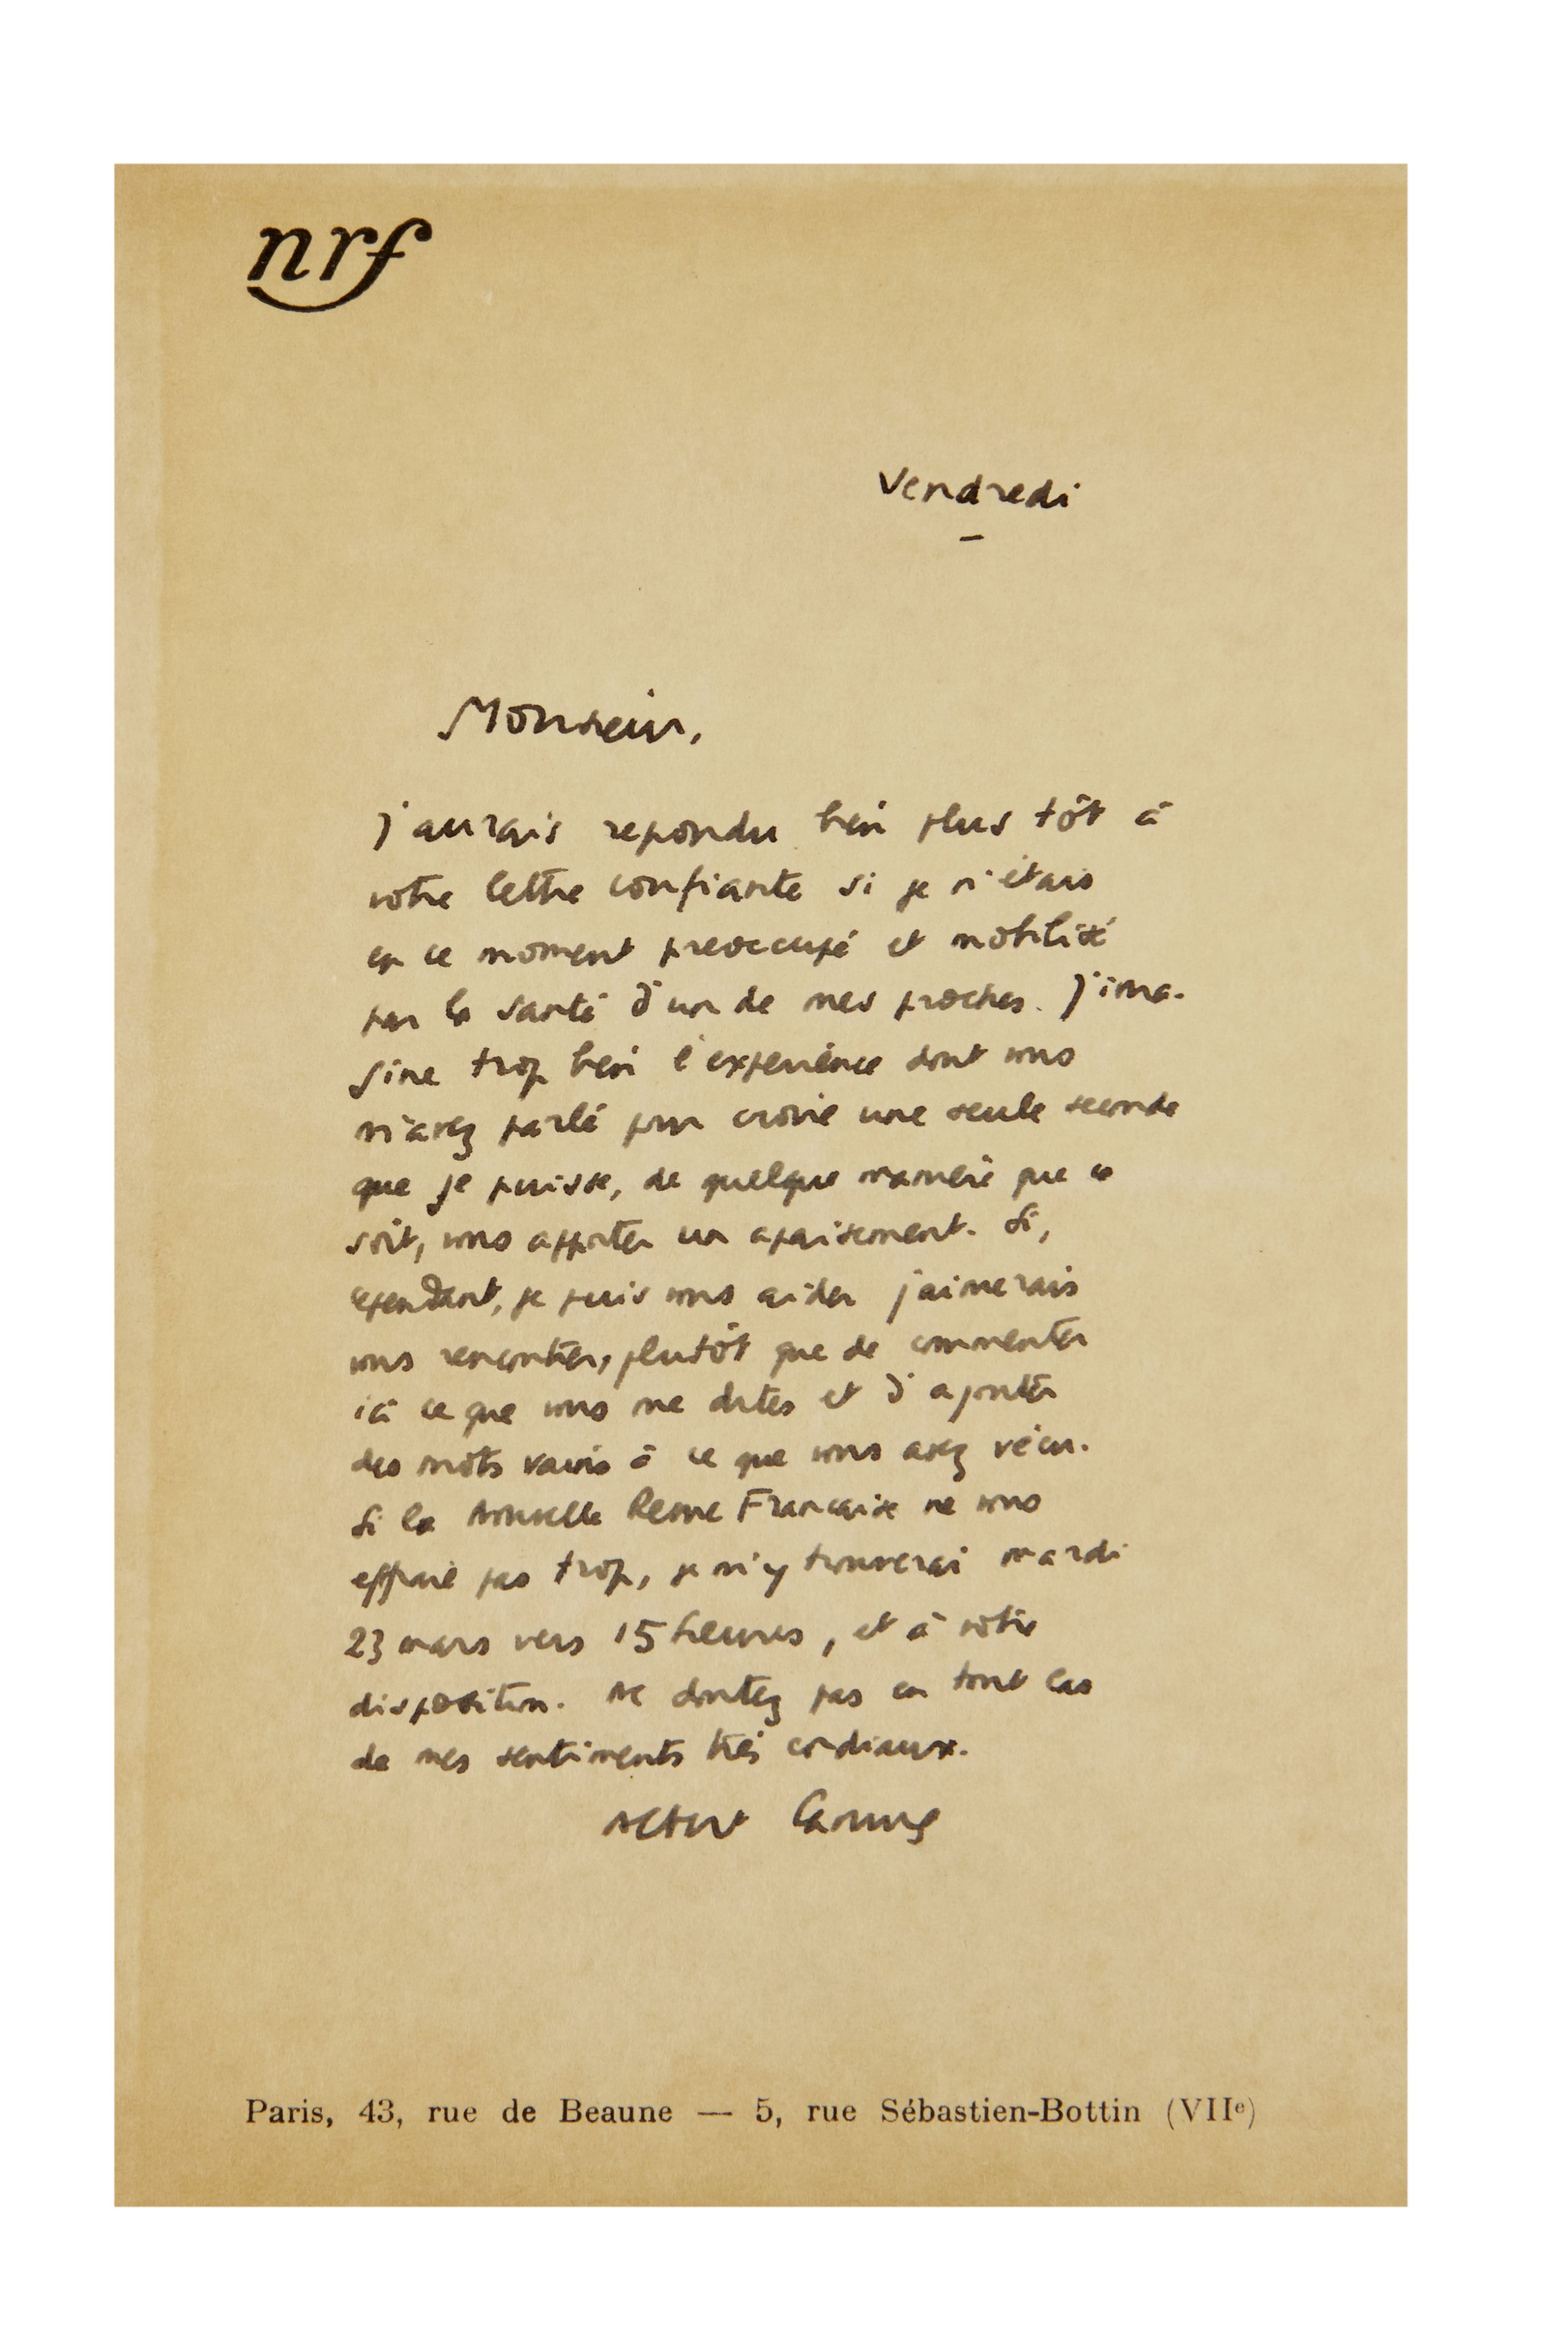 nrf
Vendredi
Monsieur,
J'aurais repondu bien plus tôt à
votre lettre confiante si je n'étais
en ce moment preoccupé et mobilisé
par la santé d'un de mes proches. J'ima-
gine trop bien l'expérience dont vous
m'avez parlé pour croire une seule seconde
que je puisse, de quelque manière que ce
soit, vous apporter un apaisement. Si,
cependant, je puis vous aider j'aimerais
vous rencontrer, plutôt que de commenter
ici ce que vous me dites et d'ajouter
des mots vains à ce que vous avez vécu.
Si la Nouvelle Revue Francaise ne vous
effraie pas trop, je m'y trouverai mardi
23 mars vers 15 heures, et à votre
disposition. Ne doutez pas en tout cas
de mes sentiments très cordiaux.
Albert Camus
Paris, 43, rue de Beaune — 5, rue Sébastien-Bottin (VIIᵉ)